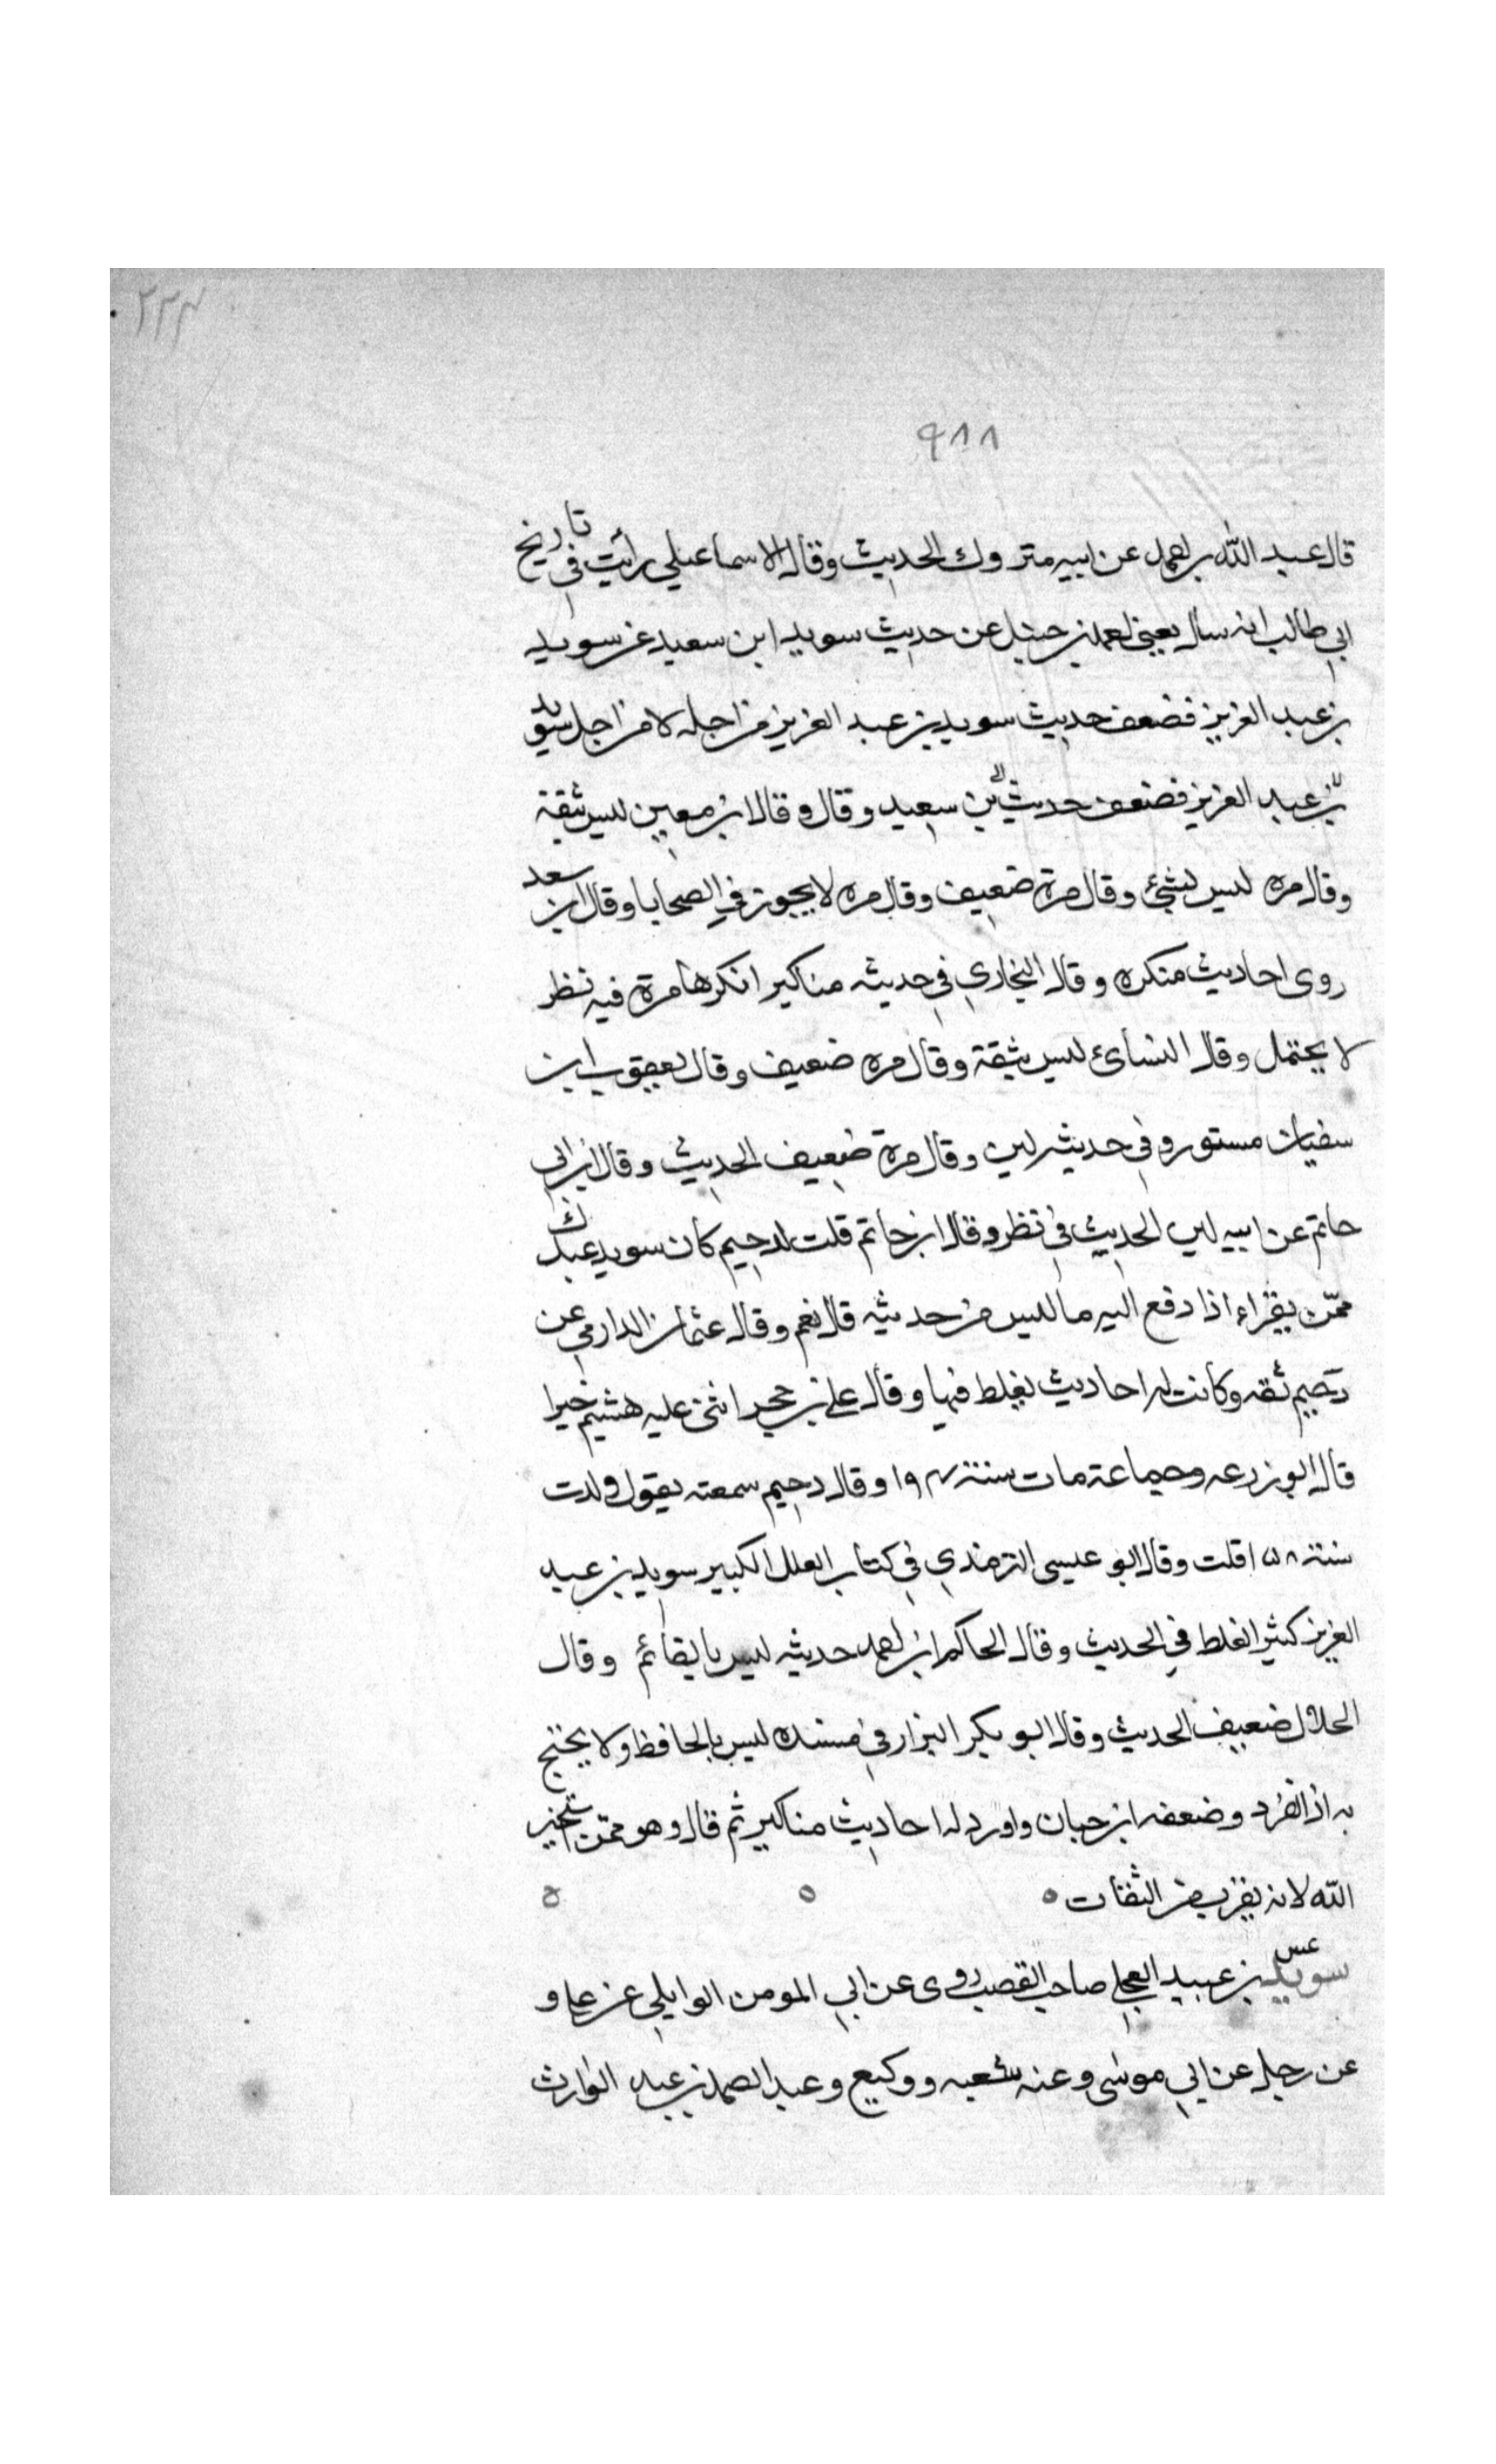 ٢٣٤
٩٨٨
قال عبد الله بن احمد عن ابيه متروك الحديث وقال الاسماعيلي رأيت في تاريخ
ابي طالب انه سأل يعني احمد بن حنبل عن حديث سويد ابن سعيد عن سويد
بن عبد العزيز فضعف حديث سويد بن عبد العزيز من اجله لا من اجل سويد
بن عبد العزيز فضعف حديث بن سعيد وقال وقال ابن معين ليس بثقة
وقال مره ليس بشئ وقال مرة ضعيف وقال مره لا يجوز في الضحايا وقال ابن سعد
روى احاديث منكره وقال البخاري في حديثه مناكير انكرها مرة فيه نظر
لا يحتمل وقال النسائ ليس بثقة وقال مره ضعيف وقال يعقوب ابن
سفيان مستور وفي حديثه لين وقال مرة ضعيف الحديث وقال ابن ابي
حاتم عن ابيه لين الحديث في نظر وقال ابن حاتم قلت لدحيم كان سويد عبدك
ممّن يقراء اذا دفع اليه ما ليس من حديثه قال نعم وقال عثمان الدارمي عن
دحيم ثقه وكانت له احاديث يغلط فيها وقال علي بن حجر اثنى عليه هشيم خيرا
قال ابو زرعه وجماعة مات سنة ١٩٤ وقال دحيم سمعته يقول ولدت
سنة ١٥٨ قلت وقال ابو عيسى الترمذي في كتاب العلل الكبير سويد بن عبد
العزيز كثير الغلط في الحديث وقال الحاكم ابو احمد حديثه ليس بالقائم وقال
الخلال ضعيف الحديث وقال ابو بكر البزار في مسنده ليس بالحافظ ولا يحتج
به اذا انفرد وضعفه ابن حبان واورد له احاديث مناكير ثم قال وهو ممّن نستخير
الله لانه يقرب من الثقات
عس سويد بن عبيد العجلي صاحب القصب روى عن ابي المومن الوايلي عن علي و
عن رجل عن ابي موسى وعنه شعبه ووكيع وعبد الصمد بن عبد الوارث